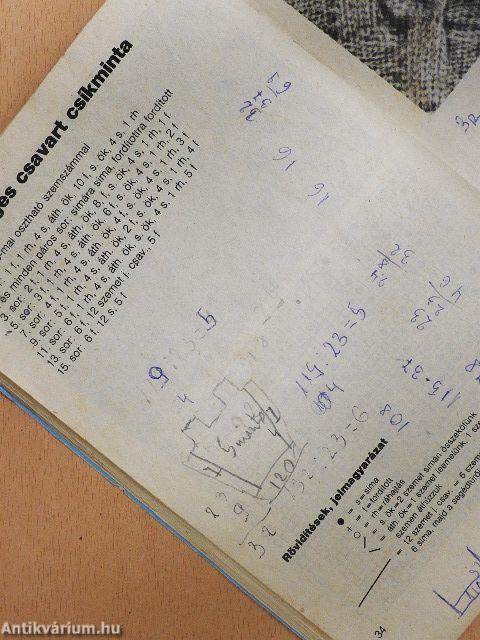 ges csavart csíkminta
mal osztható szemszámmal
1 f, 1 rh, 4 s, áth. ök, 10 f, s. ök, 4 s, 1 rh
és minden páros sor: simára sima, fordítottra fordított
3. sor: 2 f, 1 rh, 4 s, áth. ök, 8 f, s. ök, 4 s, 1 rh, 1 f
5. sor: 3 f, 1 rh, 4 s, áth. ök, 6 f, s. ök, 4 s, 1 rh, 2 f
7. sor: 4 f, 1 rh, 4 s, áth. ök, 4 f, s. ök, 4 s, 1 rh, 3 f
9. sor: 5 f, 1 rh, 4 s, áth. ök, 2 f, s. ök, 4 s, 1 rh, 4 f
11. sor: 6 f, 1 rh, 4 s, áth. ök, s. ök, 4 s, 1 rh, 5 f
13. sor: 6 f, 12 szemet l. csav., 5 f
15. sor: 6 f, 12 s, 5 f
16
16
115:23=5
32:23=6
108
115-37
5 minta
120
23
9
32
Rövidítések, jelmagyarázat
● = s=sima
+ = f=fordított
o = rh=ráhajtás
/ = s. ök=2 szemet simán összekötünk
\ = áth. ök=1 szemet leemelünk, 1 sze
szemen áthúzzuk
= 12 szemet l. csav. = 6 szem
6 sima, majd a segédtűrő
34
Antikvárium.hu